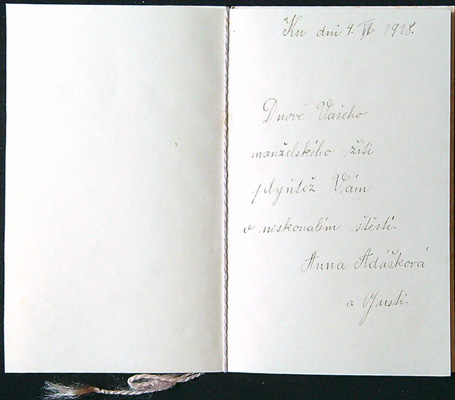 Ku dni 9. VI 1918.
Dnové Vašeho
manželského žití
plyntež Vám
v neskonalém štěstí.
Anna Adášková
a Gusti.